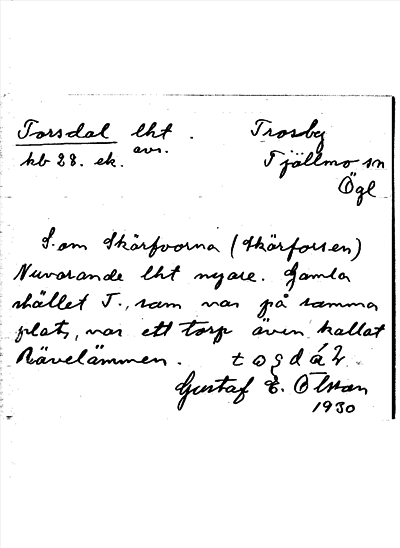 Torsdal lht. Trosby
avs.
kb 28. ek. Tjällmo sn
Ögl
S. om Skärfvorna (Skärforsen)
Nuvarande lht nyare. Gamla
stället T., som var på samma
plats, var ett torp även kallat
Rävelämmen.
Gustaf E. Olsson
1930